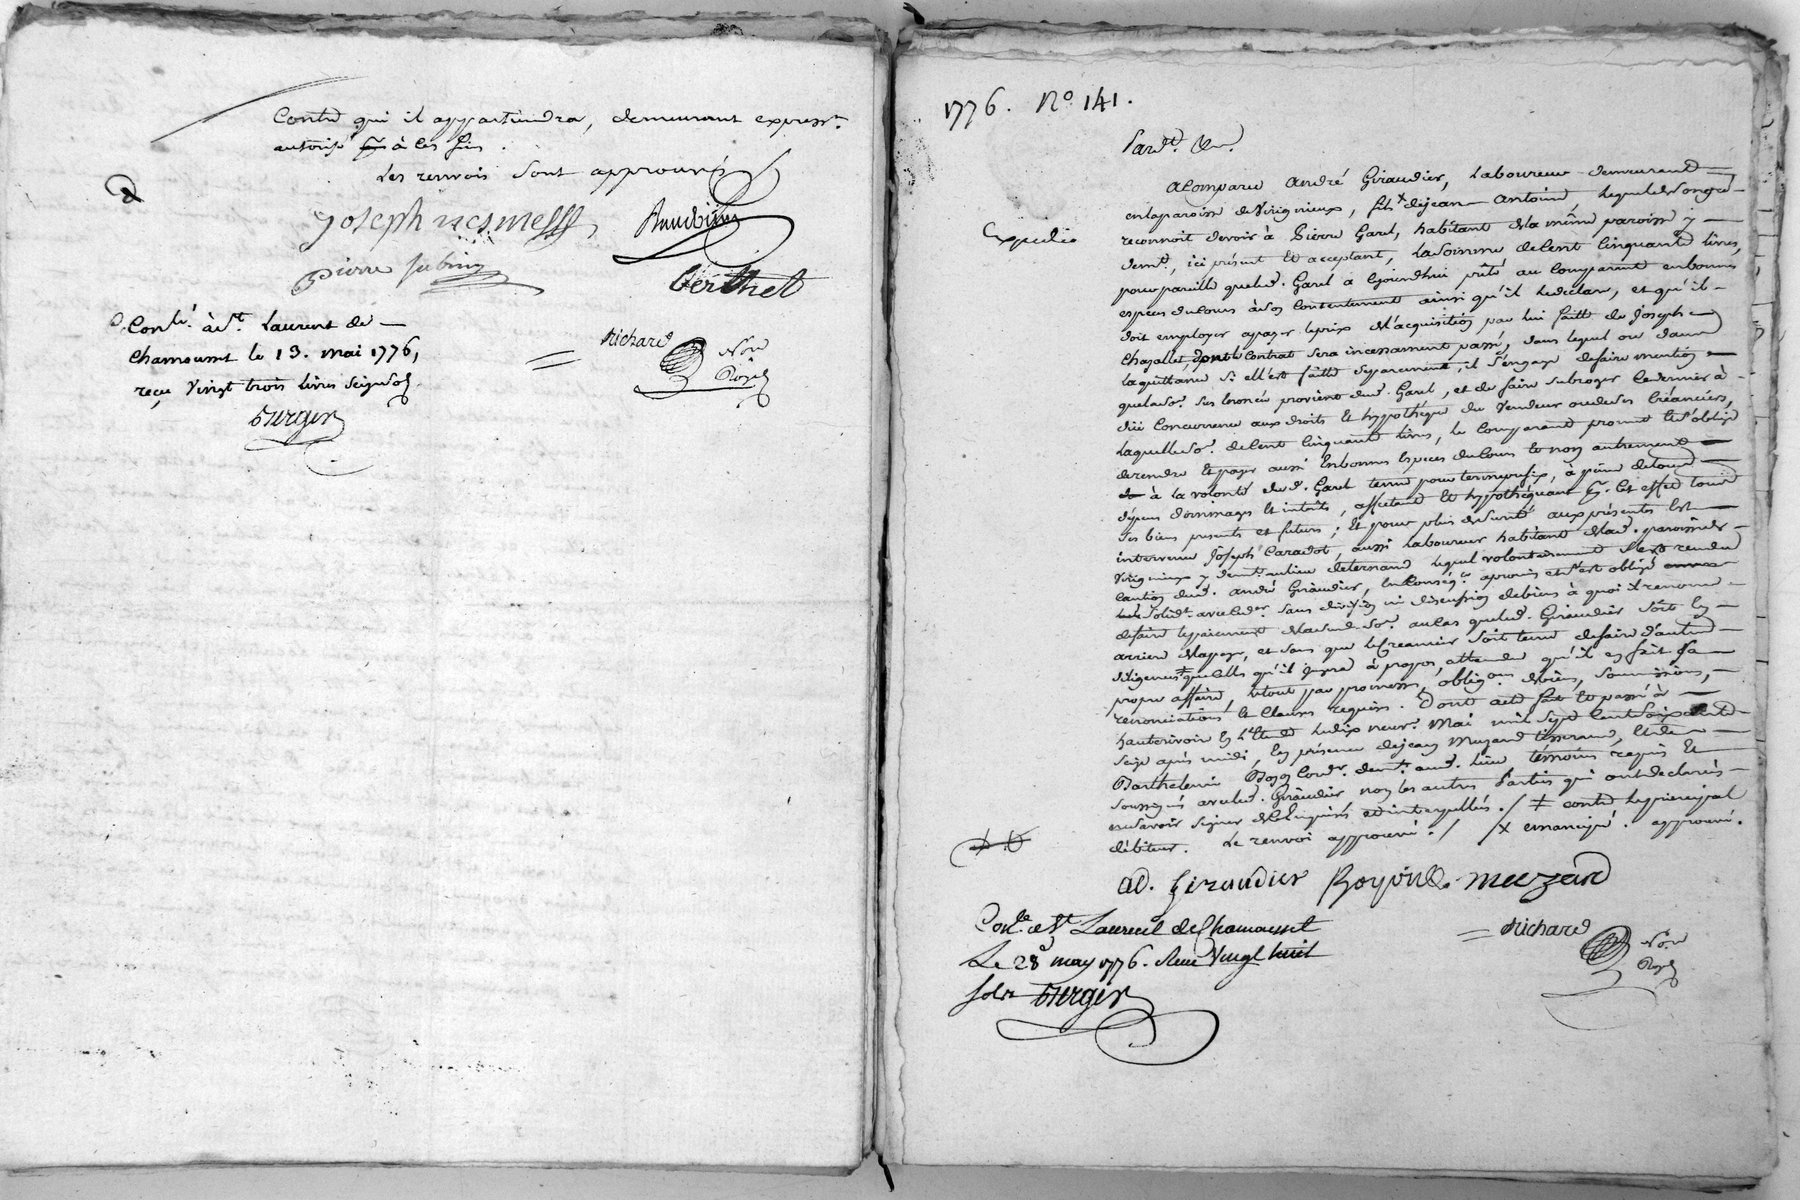 contre qui il appartiendra, demeurant express.t
autorisé à ces fins.
Les renvois sont approuvés
joseph nesmesss Baudouin
pierre subrin berthet
Con.lé à S.t Laurent de
chamousset le 13. mai 1776,
reçu vingt trois livres seize sols
Berger
Richard
No.re
Royal
1776. N.o 141.
Pard.t &c.
a comparu andré Giraudier, Laboureur demeurant
en la paroisse de Virigneux, fils x de jean antoine, lequel de son gré
Expédié
reconnoit devoir à Pierre Garel, habitant de la même paroisse y
dem.t, ici présent et acceptant, la somme de cent cinquante livres,
pour pareille que led. Garel a ajourd'hui prêté au comparant en bonnes
espèces du cours à son contentement ainsi qu'il le déclare, et qu'il
doit employer à payer le prix de l'acquisition par lui faite de Joseph
Chazallet, dont le contrat sera incessament passé, dans lequel ou dans
la quittance si elle est faitte séparément, il s'engage de faire mention
que la so.e sus énoncée provient dud. Garel, et de faire subroger ce dernier à
düe concurrence aux droits et hypothèque du vendeur ou de ses créanciers,
laquelle so.e de cent cinquante livres, le comparant promet et s'oblige
de rendre et payer aussi en bonnes espèces du cours et non autrement
à la volonté dud. Garel tenue pour terme préfix, à peine de tous
dépens dommages et intérêts, affectant et hypothéquant p.r cet effet tous
ses biens présents et futurs; et pour plus de sureté aux présentes est
intervenu Joseph Caradot, aussi laboureur habitant de lad. paroisse de
Virigneux y dem.t au lieu de ternand lequel volontairement s'est rendu
caution dud. andré Giraudier, en conség.ce a promis et s'est obligé
solid.t avec led.r sans division ni discussion de biens à quoi il renonce
de faire le paiement de lad. so.e au cas que led. Giraudier soit en
arriere de la payer, et sans que le créancier soit tenu de faire d'autres
diligences ‡ que celles qu'il jugera à propos, attendu qu'il en fait sa
propre affaire, le tout par promesses, oblig.ons de biens, soumissions,
renonciations et clauses requises. Dont acte fait et passé à
hauterivoire en l'étude le dix neuf. Mai mil sept cent soixante
seize après midi, en présence de jean Muzard tisserand, et de
Barthelemi Boyon cord.r dem.t aud. lieu témoins requis et
soussignés avec led. Giraudier non les autres parties qui ont déclaré
ne savoir signer de ce enquis et interpellés. / ‡ contre le principal
débiteur. Le renvoi approuvé. / /x émancipé. approuvé.
ad. Giraudier Boyon muzard
Con.lé à S.t Laurent de Chamousset
Le 28 may 1776. Reçu Vingt huit
sols Berger
Richard
No.re
Royal